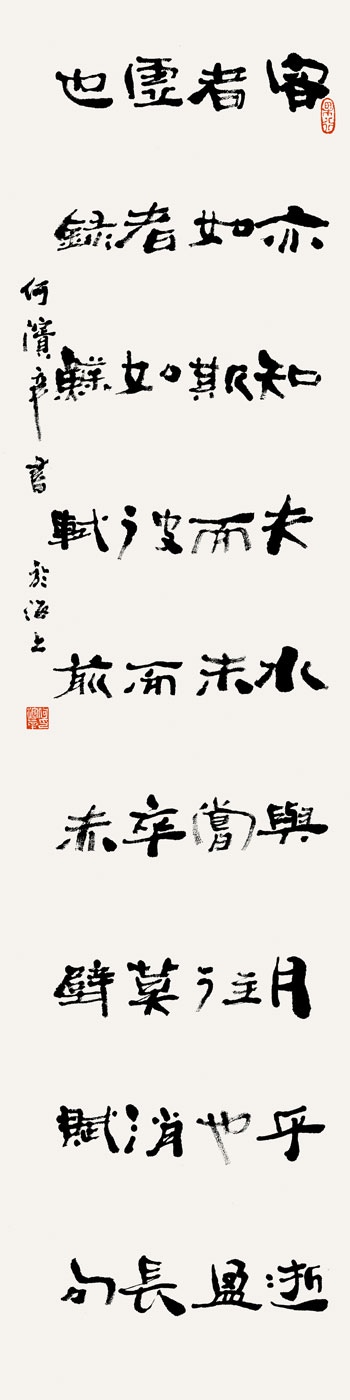 客亦知夫水與月乎逝
者如斯而未嘗往也盈
虛者如彼而卒莫消長
也錄蘇軾前赤壁賦句
何濱書於海上